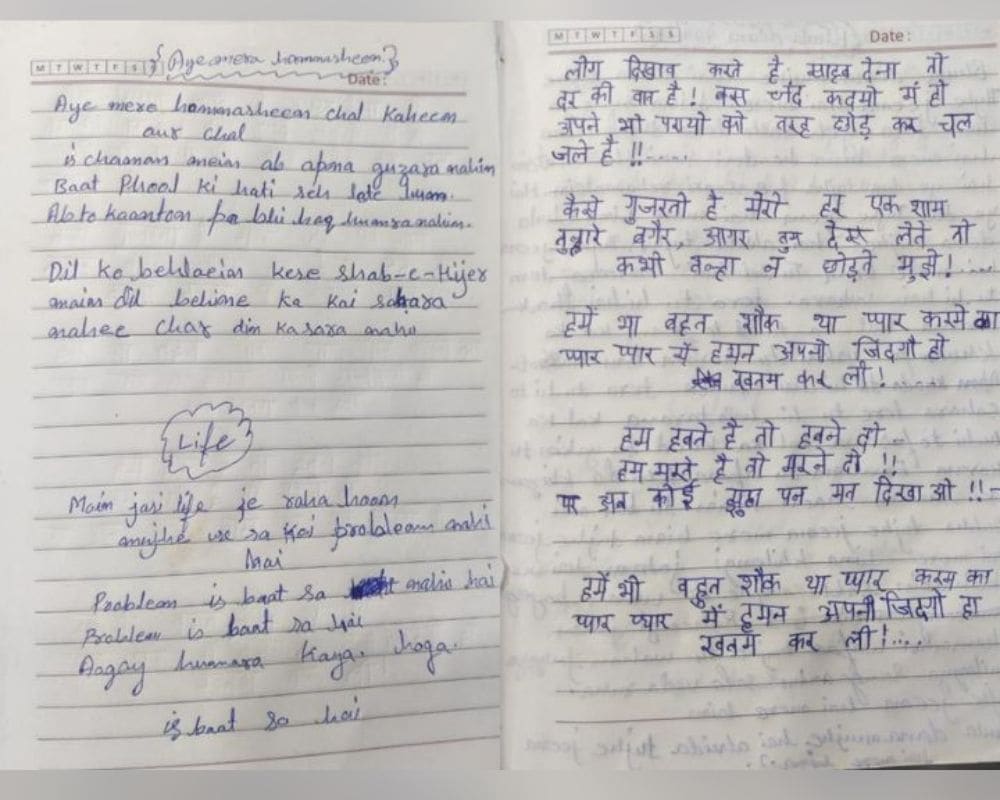 M T W T F S S
{Aye mera hommasheem}
Date:
Aye mere hommasheem chal Kaheem
aur chal
is chaaman meim ab apna guzara nahim
Baat Phool ki hati seh late hum.
Ab to kaanton pa bhi haq humsra nahim.
Dil ko behlaeim kese shab-e-Hijer
maim dil behime ka kai sahara
nahee char dim ka sara nahi
Life
Maim jasi life je raha hoom
mujhe us sa koi problem nahi
hai
Problem is baat sa nahi hai
Problem is baat sa hai
Aagay humara kaya. hoga.
is baat sa hai
M T W T F S S
Date:
लोग दिखाव करते है साहब देना तो
दूर की बात है! बस चंद कदमो मं ही
अपने भी परायो की तरह छोड़ कर चल
जले है !!.....
कैसे गुजरती है मेरी हर एक शाम
तुम्हारे बगैर, आगर तुम देख लेते तो
कभी तन्हा न छोड़ते मुझे!
हमें भा बहुत शौक था प्यार करने का
प्यार प्यार में हमन अपनी जिंदगी ही
खतम कर ली!
हम हबते है तो हबने दो
हम मरते है तो मरने दो !!
पर अब कोई झुठा पन मत दिखा ओ !!-
हमें भी बहुत शौक था प्यार करन का
प्यार प्यार में हमन अपनी जिदगी हा
खतम कर ली!....